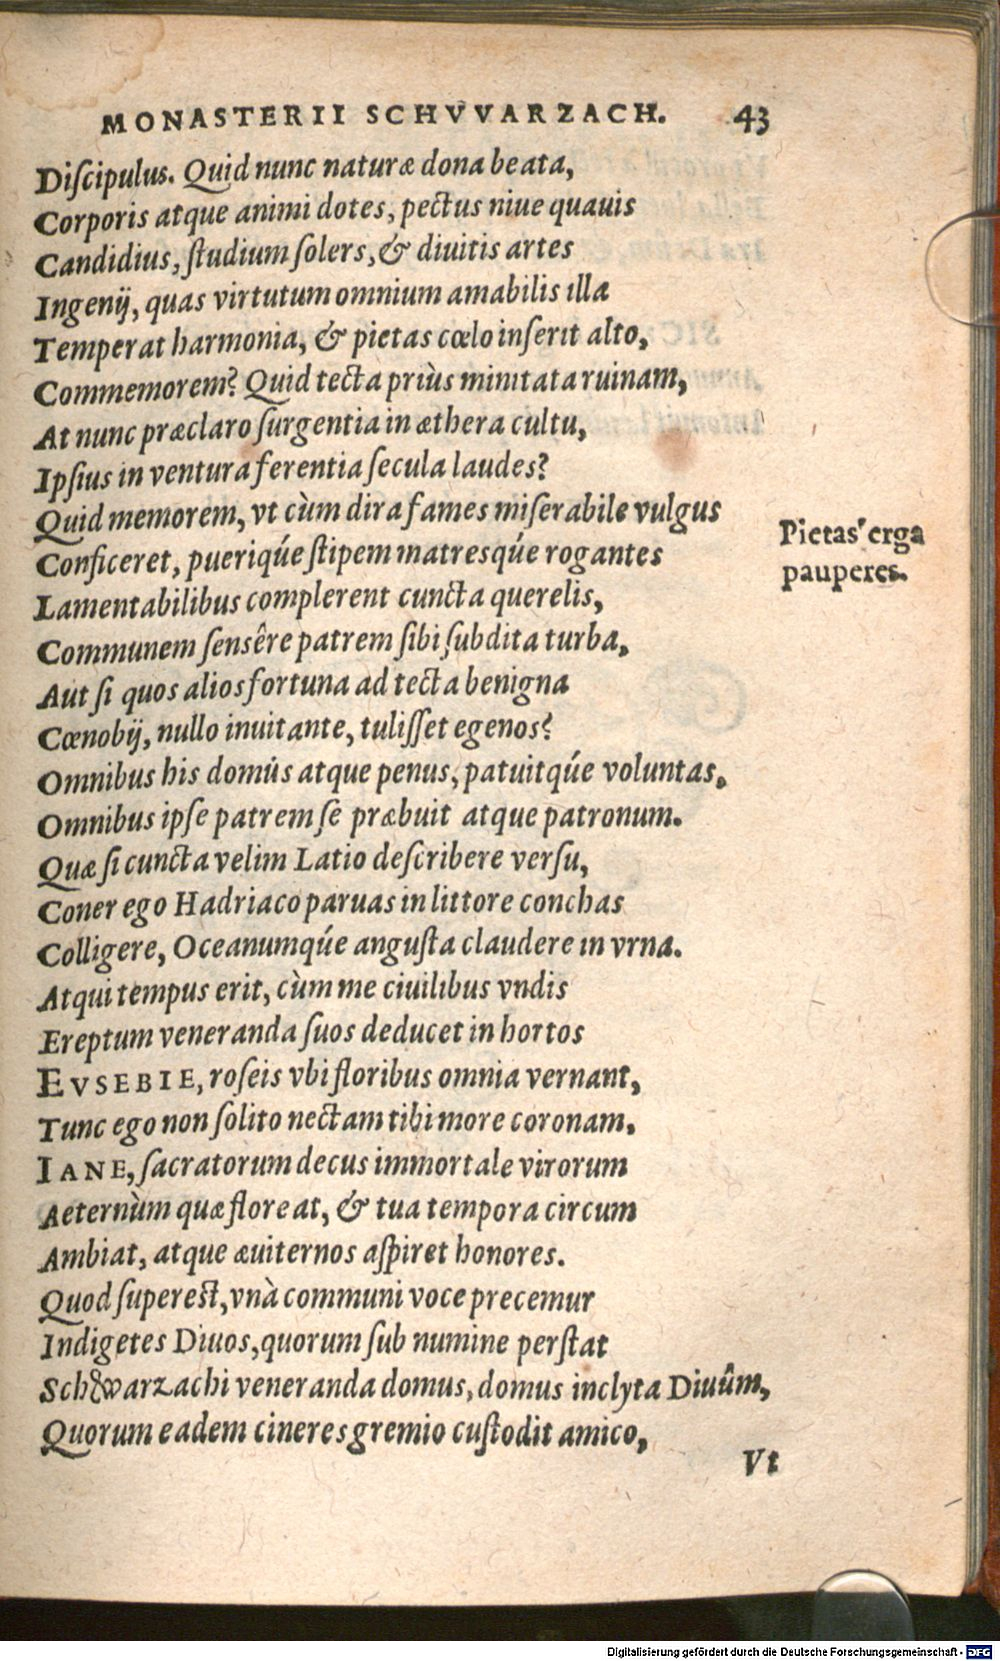 MONASTERII SCHVVARZACH. 43
Diſcipulus. Quid nunc naturæ dona beata,
Corporis atque animi dotes, pectus niue quauis
Candidius, ſtudium ſolers, & diuitis artes
Ingenij, quas virtutum omnium amabilis illa
Temperat harmonia, & pietas cœlo inſerit alto,
Commemorem? Quid tecta priùs minitata ruinam,
At nunc præclaro ſurgentia in æthera cultu,
Ipſius in ventura ferentia ſecula laudes?
Quid memorem, vt cùm dira fames miſerabile vulgus
Conficeret, pueriqúe ſtipem matresqúe rogantes
Lamentabilibus complerent cuncta querelis,
Communem ſensêre patrem ſibi ſubdita turba,
Aut ſi quos alios fortuna ad tecta benigna
Cœnobij, nullo inuitante, tuliſſet egenos?
Pietas erga
pauperes.
Omnibus his domús atque penus, patuitqúe voluntas,
Omnibus ipſe patrem ſe præbuit atque patronum.
Quæ ſi cuncta velim Latio deſcribere verſu,
Coner ego Hadriaco paruas in littore conchas
Colligere, Oceanumqúe anguſta claudere in vrna.
Atqui tempus erit, cùm me ciuilibus vndis
Ereptum veneranda ſuos deducet in hortos
EVSEBIE, roſeis vbi floribus omnia vernant,
Tunc ego non ſolito nectam tibi more coronam,
IANE, ſacratorum decus immortale virorum
Aeternùm quæ floreat, & tua tempora circum
Ambiat, atque æuiternos aſpiret honores.
Quod ſupereſt, vnà communi voce precemur
Indigetes Diuos, quorum ſub numine perſtat
Schwarzachi veneranda domus, domus inclyta Diuûm,
Quorum eadem cineres gremio cuſtodit amico,
Vt
Digitalisierung gefördert durch die Deutsche Forschungsgemeinschaft - DFG